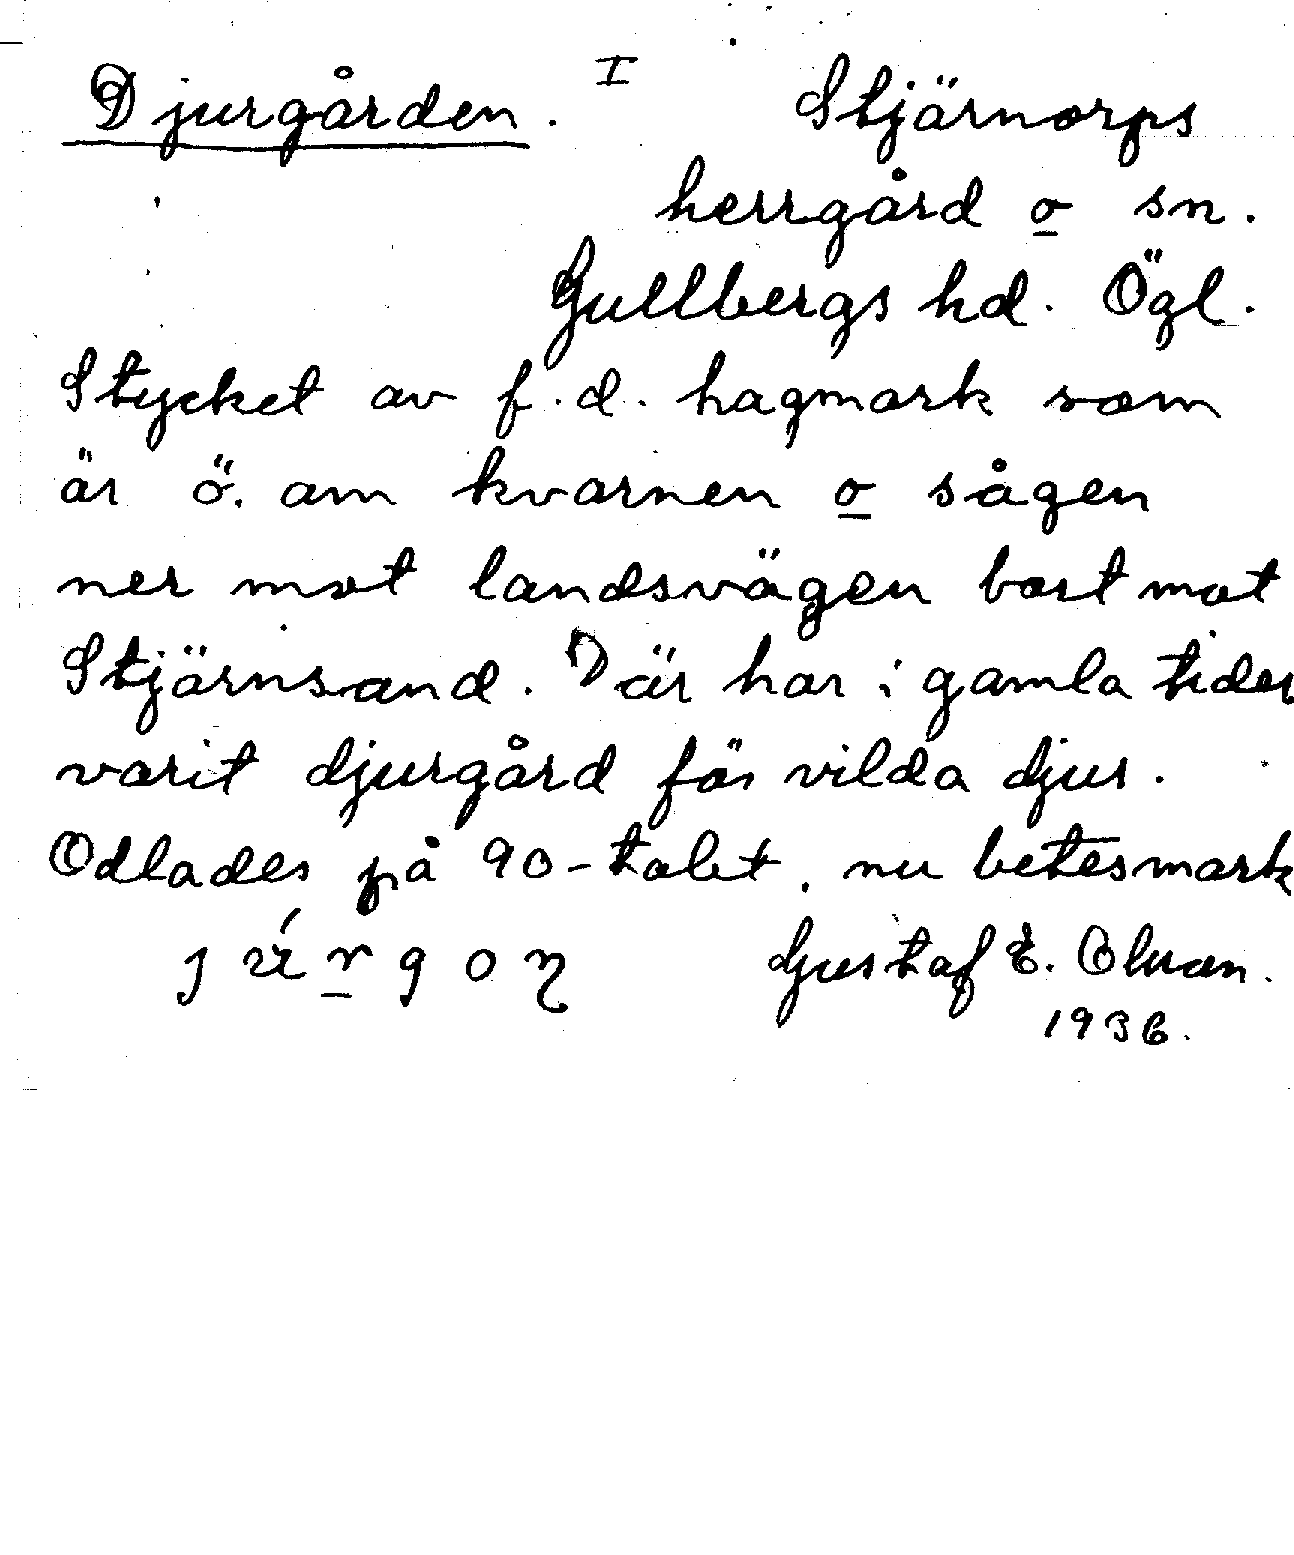 Djurgården. I Stjärnorps
herrgård o sn.
Gullbergs hd. Ögl.
Stycket av f.d. hagmark som
är ö. om kvarnen o sågen
ner mot landsvägen bort mot
Stjärnsand. Där har i gamla tider
varit djurgård för vilda djur.
Odlades på 90-talet, nu betesmark
Gustaf E. Olsson.
1936.